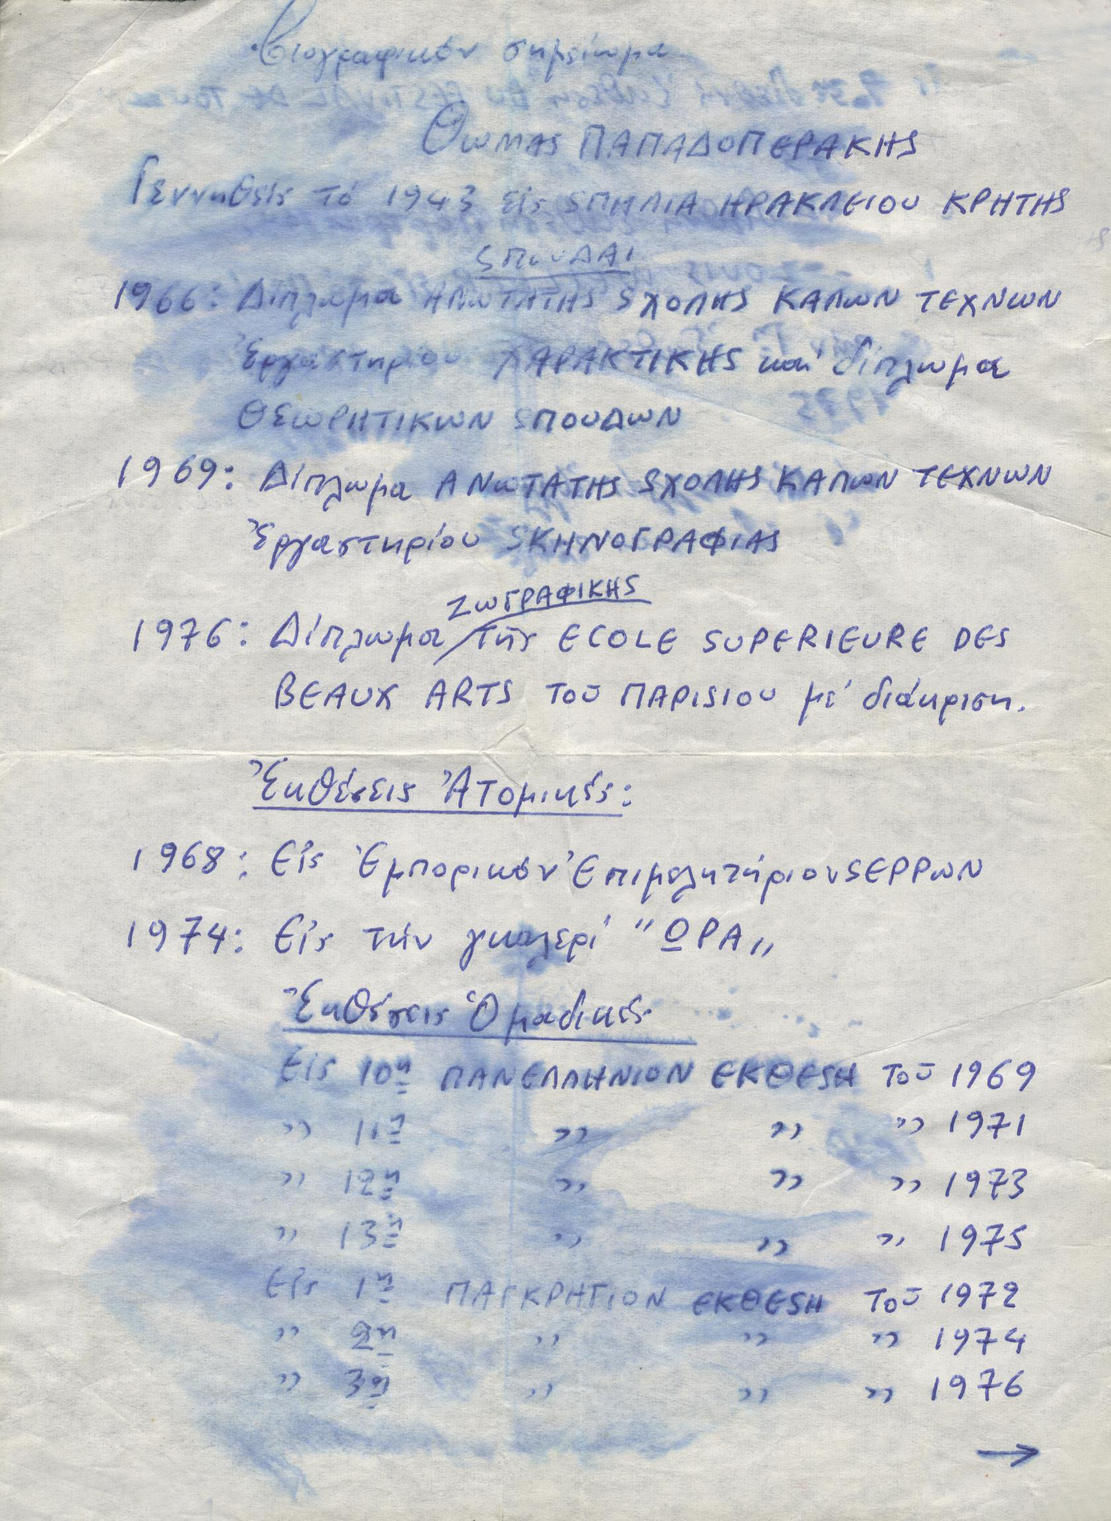 Βιογραφικόν σημείωμα
Θωμάς ΠΑΠΑΔΟΠΕΡΑΚΗΣ
Γεννηθείς τό 1943 εἰς ΣΠΗΛΙΑ ΗΡΑΚΛΕΙΟΥ ΚΡΗΤΗΣ
ΣΠΟΥΔΑΙ
1966: Δίπλωμα ΑΝΩΤΑΤΗΣ ΣΧΟΛΗΣ ΚΑΛΩΝ ΤΕΧΝΩΝ
Ἐργαστηρίου ΧΑΡΑΚΤΙΚΗΣ καί δίπλωμα
ΘΕΩΡΗΤΙΚΩΝ ΣΠΟΥΔΩΝ
1969: Δίπλωμα ΑΝΩΤΑΤΗΣ ΣΧΟΛΗΣ ΚΑΛΩΝ ΤΕΧΝΩΝ
Ἐργαστηρίου ΣΚΗΝΟΓΡΑΦΙΑΣ
ΖΩΓΡΑΦΙΚΗΣ
1976: Δίπλωμα τῆς ECOLE SUPERIEURE DES
BEAUX ARTS τοῦ ΠΑΡΙΣΙΟΥ μέ διάκριση.
Ἐκθέσεις Ἀτομικές:
1968: Εἰς Ἐμπορικόν Ἐπιμελητήριον ΣΕΡΡΩΝ
1974: Εἰς τήν γκαλερί "ΩΡΑ"
Ἐκθέσεις Ὁμαδικές
Εἰς 10η ΠΑΝΕΛΛΗΝΙΟΝ ΕΚΘΕΣΗ τοῦ 1969
" 11η " " " 1971
" 12η " " " 1973
" 13η " " " 1975
Εἰς 1η ΠΑΓΚΡΗΤΙΟΝ ΕΚΘΕΣΗ τοῦ 1972
" 2η " " " 1974
" 3η " " " 1976
→